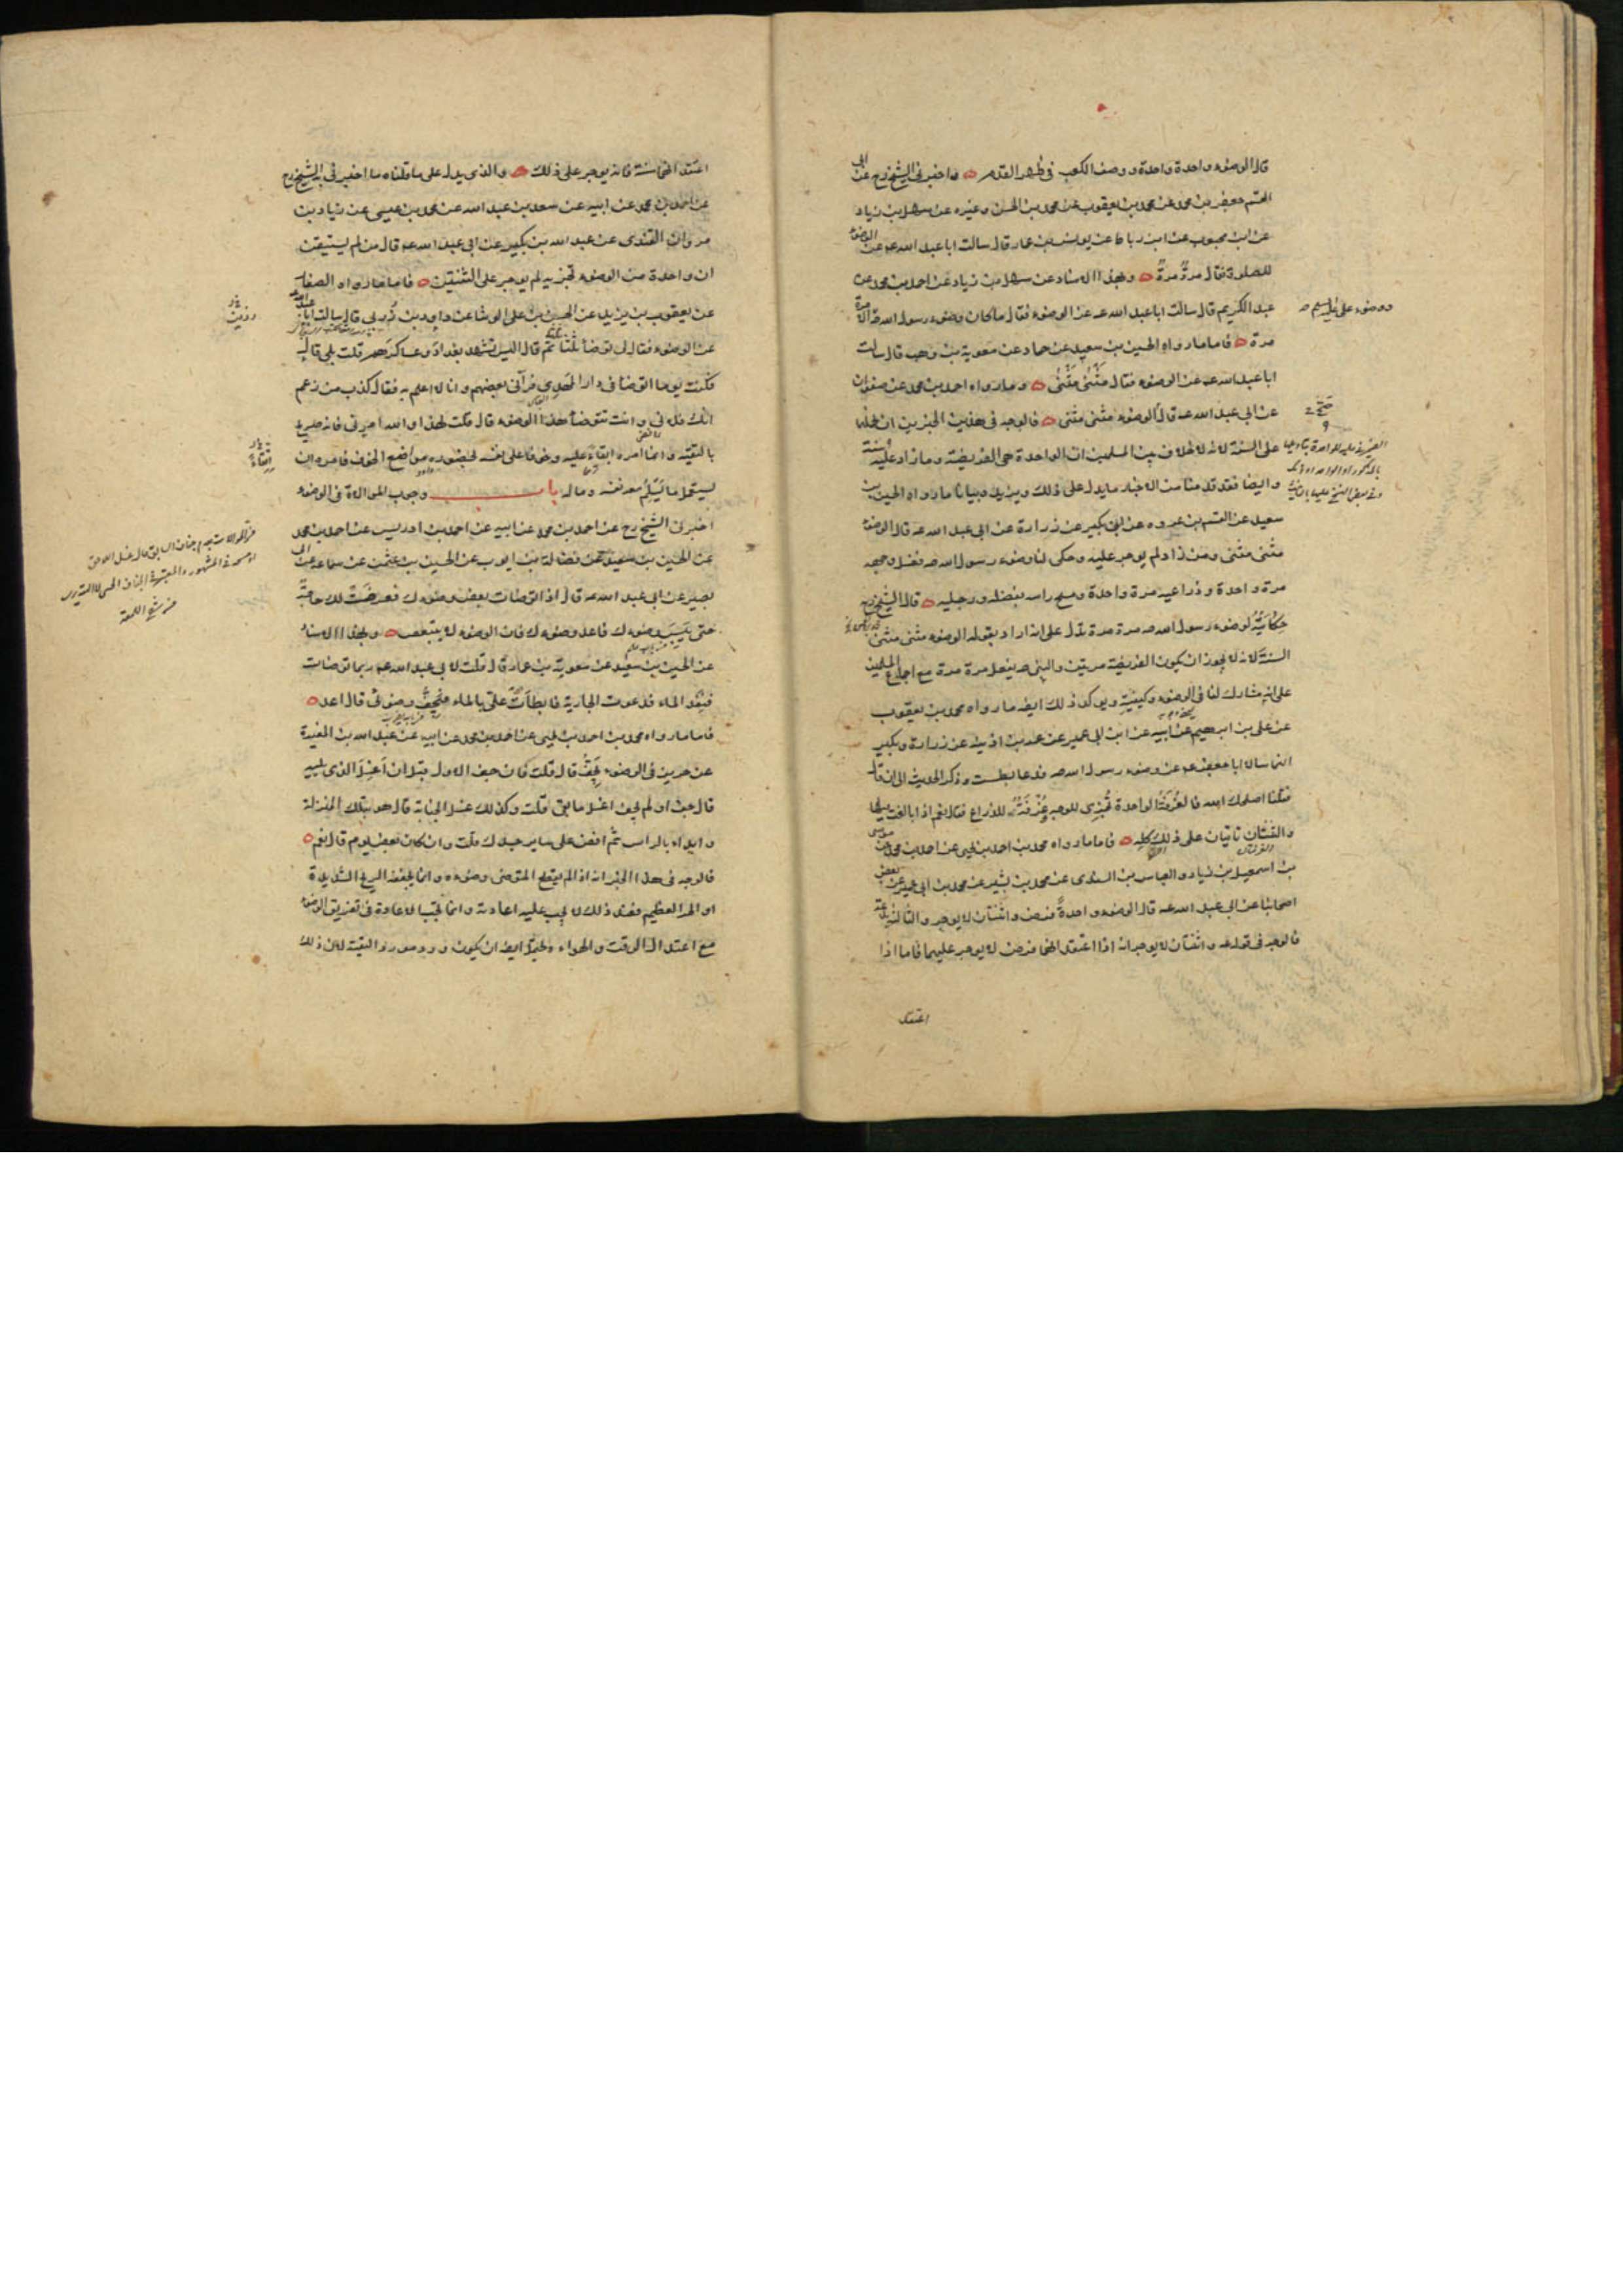 قال الوضوء واحدة واحدة ووصف الكعب في ظهر القدم واخبرني الشيخ رح عن ابي
القسم جعفر بن محمد عن محمد بن يعقوب عن محمد بن الحسن وغيره عن سهل بن زياد
عن ابن محبوب عن ابن رباط عن يونس بن عمار قال سالت ابا عبد الله عه عن الوضوء
للصلوة فقال مرة مرة وبهذا الاسناد عن سهل بن زياد عن احمد بن محمد عن
عبد الكريم قال سالت ابا عبد الله عه عن الوضوء فقال ما كان وضوء رسول الله صه الا مرة
مرة فاما ما رواه الحسين بن سعيد عن حماد عن معوية بن وهب قال سالت
ابا عبد الله عه عن الوضوء فقال مثنى مثنى وما رواه احمد بن محمد عن صفوان
عن ابي عبد الله عه قال الوضوء مثنى مثنى فالوجه في هذين الخبرين ان نحملها
على السنة لانه لا خلاف بين المسلمين ان الواحدة هي الفريضة وما زاد عليه سنة
وايضا فقد قدمنا من الاخبار ما يدل على ذلك ويزيده بيانا ما رواه الحسين بن
سعيد عن القسم بن عروه عن ابن بكير عن زرارة عن ابي عبد الله عه قال الوضوء
مثنى مثنى ومن زاد لم يوجر عليه وحكى لنا وضوء رسول الله صه فغسل وجهه
مرة واحدة وذراعيه مرة واحدة ومسح راسه بفضله ورجليه قال الشيخ رح
حكايته لوضوء رسول الله صه مرة مرة تدل على انه اراد بقوله الوضوء مثنى مثنى
السنة لانه لا يجوز ان يكون الفريضة مرتين والنبي صه يفعل مرة مرة مع اجماع المسلمين
على انه مشارك لنا في الوضوء وكيفيته ويوكد ذلك ايضا ما رواه محمد بن يعقوب
عن علي بن ابرهيم عن ابيه عن ابن ابي عمير عن عمر بن اذينه عن زرارة وبكير
انهما سالا ابا جعفر عه عن وضوء رسول الله صه فدعا بطست وذكر الحديث الى ان قال
فقلنا اصلحك الله فالغرفة الواحدة تجزي للوجه وغرفة للذراع فقال نعم اذا بالغت فيها
والثنتان تاتيان على ذلك كله فاما ما رواه محمد بن احمد بن يحيى عن موسى
بن اسمعيل بن زياد والعباس بن السندي عن محمد بن بشير عن محمد بن ابي عمير عن بعض
اصحابنا عن ابي عبد الله عه قال الوضوء واحدة فرض واثنتان لا يوجر والثالثة بدعة
فالوجه في قوله عه واثنتان لا يوجر انه اذا اعتقد انهما فرض لا يوجر عليهما فاما اذا
اعتقد
ووضوء علي عليه السلم
اعتقد انهما سنة فانه يوجر على ذلك والذي يدل على ما قلناه ما اخبرني به الشيخ رح
عن احمد بن محمد عن ابيه عن سعد بن عبد الله عن محمد بن عيسى عن زياد بن
مروان القندى عن عبد الله بن بكير عن ابي عبد الله عه قال من لم يستيقن
ان واحدة من الوضوء تجزيه لم يوجر على الثنتين فاما ما رواه الصفار
عن يعقوب بن يزيد عن الحسن بن علي الوشا عن داود بن زربي قال سالت ابا عبد الله عه
عن الوضوء فقال لي توضا ثلثا ثم قال اليس تشهد بغداد وعساكرهم قلت بلى قال
فكنت يوما اتوضا في دار المهدي فرآني بعضهم وانا لا اعلم به فقال كذب من زعم
انك فلاني وانت تتوضا هذا الوضوء قال فقلت لهذا والله امرني فانه صريح
بالتقية وانما امره ابقاء عليه وخوفا على نفسه لحضوره مواضع الخوف فامره ان
يستعمل ما يسلم معه نفسه وماله باب وجوب الموالاة في الوضوء
اخبرني الشيخ رح عن احمد بن محمد عن ابيه عن احمد بن ادريس عن احمد بن محمد
عن الحسين بن سعيد عن فضالة بن ايوب عن الحسين بن عثمن عن سماعه عن ابي
بصير عن ابي عبد الله عه قال اذا توضات بعض وضوءك فعرضت لك حاجة
حتى ييبس وضوءك فاعد وضوءك فان الوضوء لا يتبعض وبهذا الاسناد
عن الحسين بن سعيد عن معوية بن عمار قال قلت لابي عبد الله عه ربما توضات
فنفد الماء فدعوت الجارية فابطات علي بالماء فيجف وضوئي قال اعد
فاما ما رواه محمد بن احمد بن يحيى عن احمد بن محمد عن ابيه عن عبد الله بن المغيرة
عن حريز في الوضوء يجف قال قلت فان جف الاول قبل ان اغسل الذي يليه
قال جف او لم يجف اغسل ما بقى قلت وكذلك غسل الجنابة قال هو بتلك المنزلة
وابداء بالراس ثم افض على ساير جسدك قلت وان كان بعض يوم قال نعم
فالوجه في هذا الخبر انه اذا لم يقطع المتوضى وضوءه وانما يجففه الريح الشديدة
او الحر العظيم فعند ذلك لا يجب عليه اعادته وانما تجب الاعادة في تفريق الوضوء
مع اعتدال الوقت والهواء ويحتمل ايضا ان يكون ورد مورد التقية لان ذلك